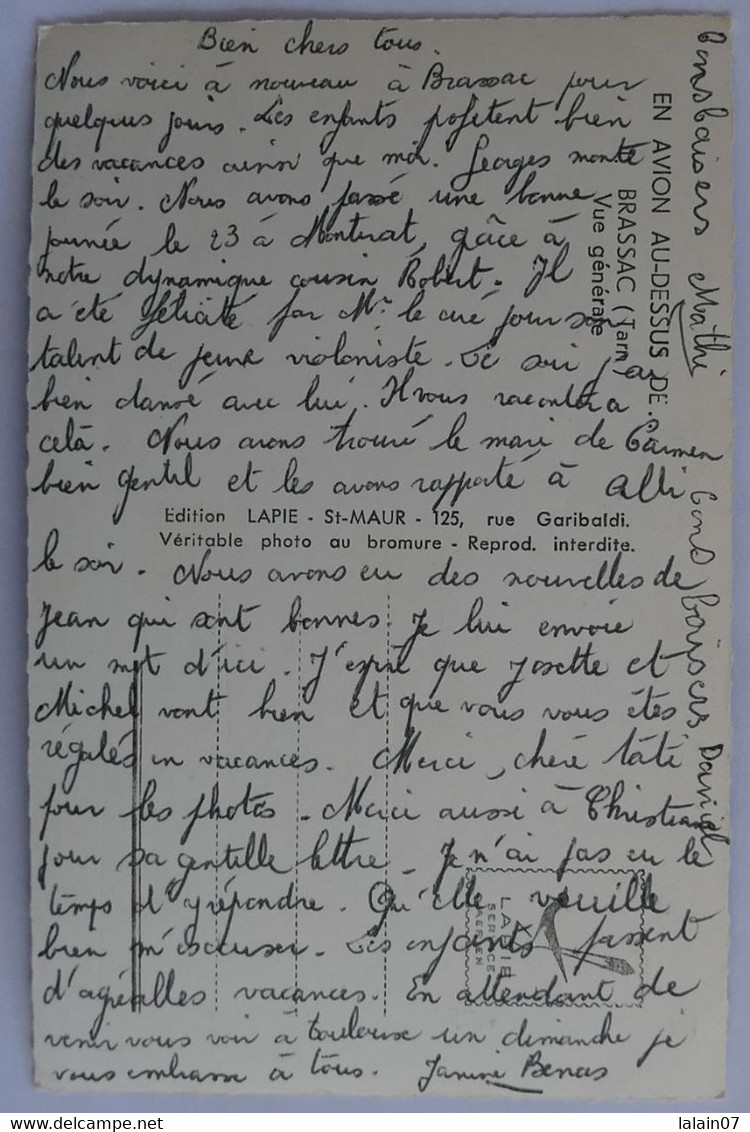 Bien chers tous.
Nous voici à nouveau à Brassac pour
quelques jours. Les enfants profitent bien
des vacances ainsi que moi. Georges monte
le soir. Nous avons passé une bonne
journée le 23 à Montirat, grâce à
notre dynamique cousin Robert. Il
a été félicité par Mr le curé pour son
talent de jeune violoniste. Le soir j'ai
bien dansé avec lui. Il vous racontera
celà. Nous avons trouvé le mari de Carmen
bien gentil et les avons rapporté à Albi
le soir. Nous avons eu des nouvelles de
Jean qui sont bonnes. Je lui envoie
un mot d'ici. J'espère que Josette et
Michel vont bien et que vous vous êtes
régalés en vacances. Merci, chère tati
pour les photos. Merci aussi à Christiane
pour sa gentille lettre. Je n'ai pas eu le
temps d'y répondre. Qu'elle veuille
bien m'excuser. Les enfants passent
d'agréables vacances. En attendant de
venir vous voir à Toulouse un dimanche je
vous embrasse à tous. Janine Benas
Bons baisers Mathi
Bons baisers Daniel
EN AVION AU-DESSUS DE.
BRASSAC (Tarn)
Vue générale
Edition LAPIE - St-MAUR - 125, rue Garibaldi.
Véritable photo au bromure - Reprod. interdite.
LAPIE
SERVICE
AERIEN
lalain07